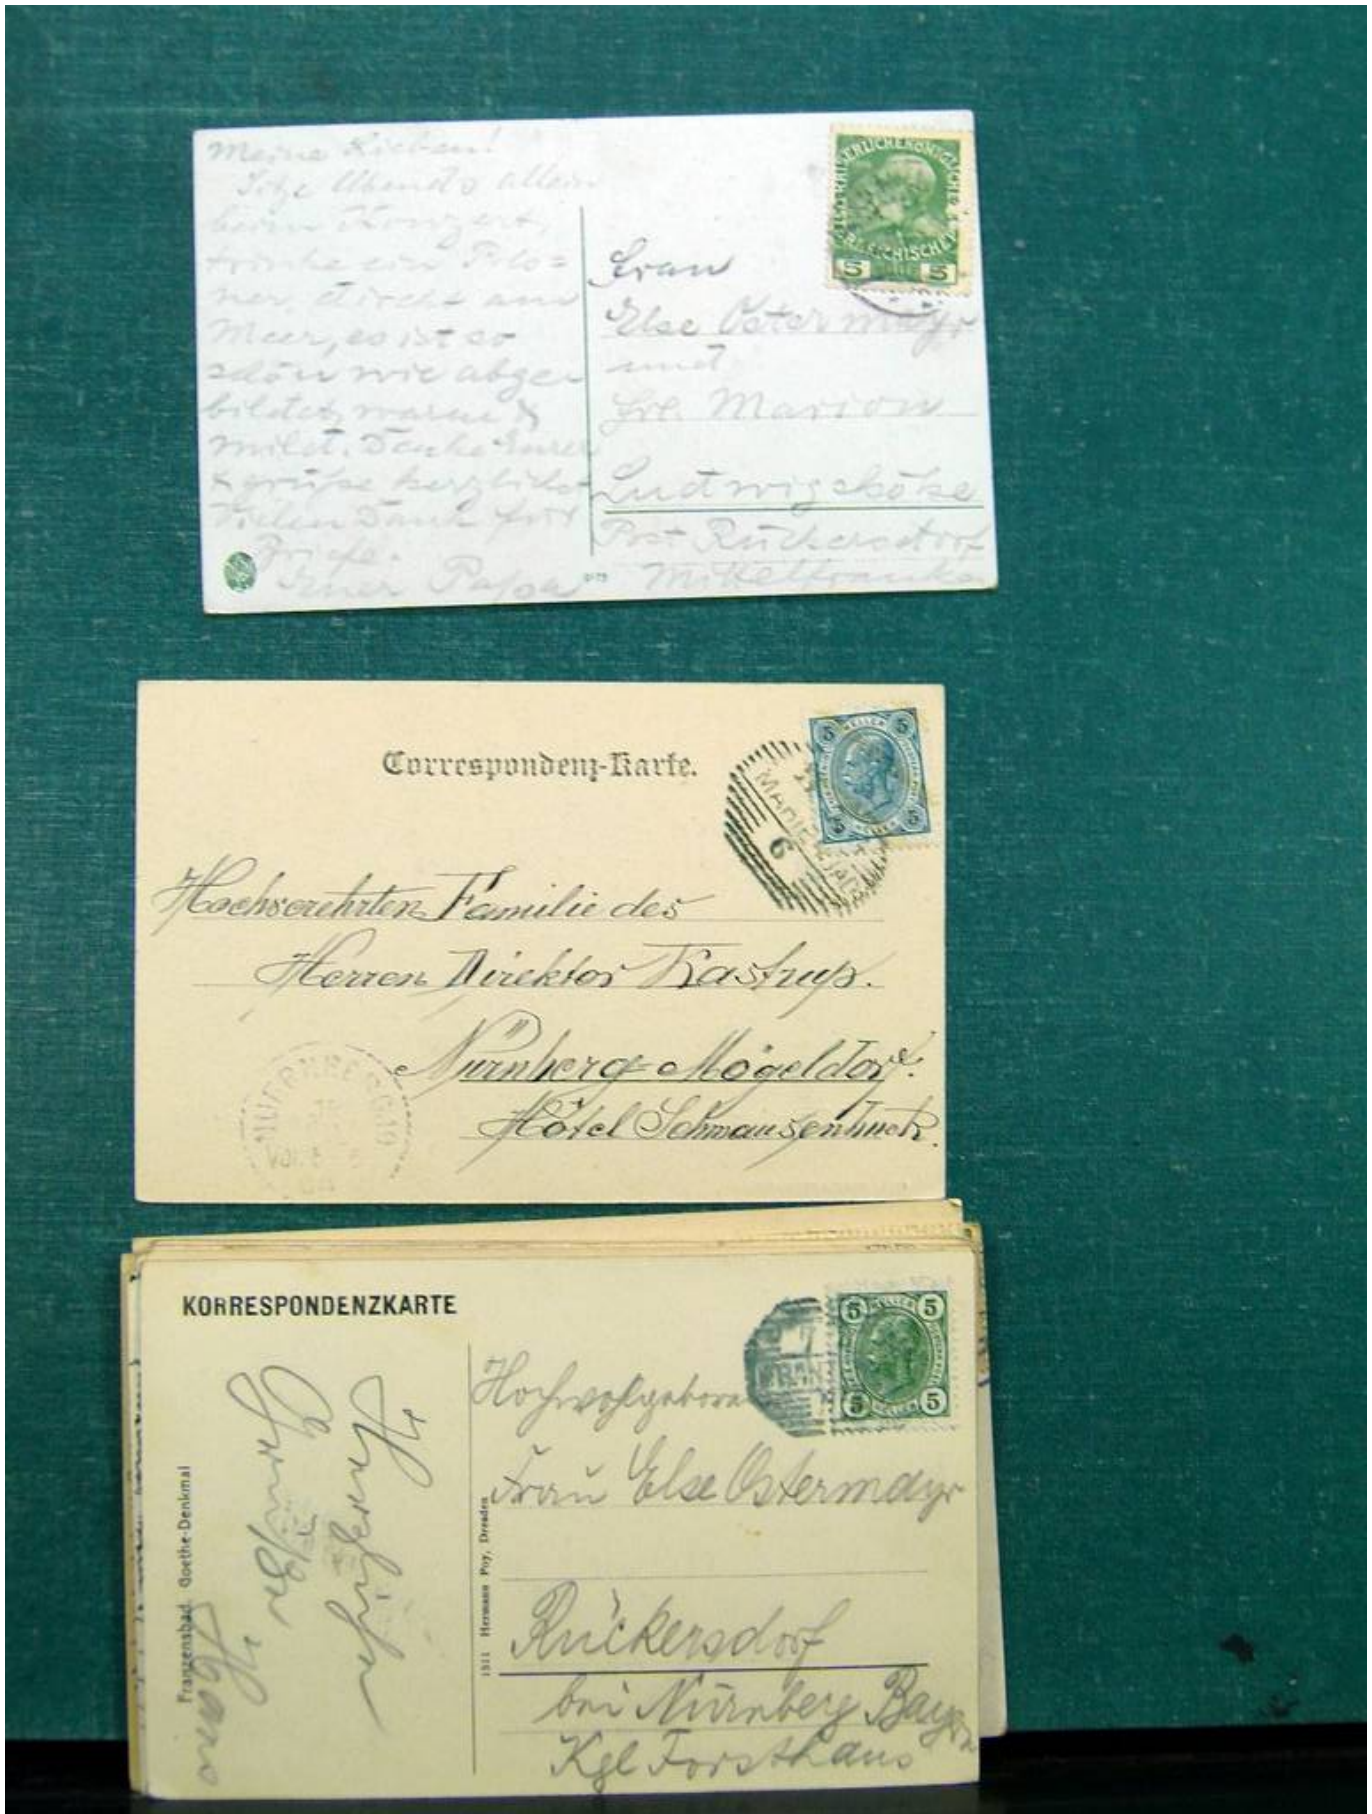 Meine Lieben!
Sitze Abends allein
beim Konzert,
trinke ein Pilo=
ner, direkt am
Meer, es ist so
schön wie abge=
bildet, warm &
mild. Danke Eurer
& grüße herzlichst
Vielen Dank für
Briefe.
Euer Papa
5 5
Frau
Else Ostermayr
und
Frl. Marion
Ludwigshöhe
Post Rückersdorf
Mittelfranken
Correspondenz-Karte.
5 HELLER 5
5 HELLER 5
6
Hochverehrten Familie des
Herren Direktor Kastrup.
Nürnberg=Mögeldorf.
Hôtel Schmausenbuck.
NUERNBERG
KORRESPONDENZKARTE
5 HELLER 5
5 HELLER 5
FRAN
Franzensbad. Goethe-Denkmal
1911 Hermann Poy, Dresden
Hochwohlgeboren
Frau Else Ostermayr
Rückersdorf
bei Nürnberg Bayern
Kgl Forsthaus